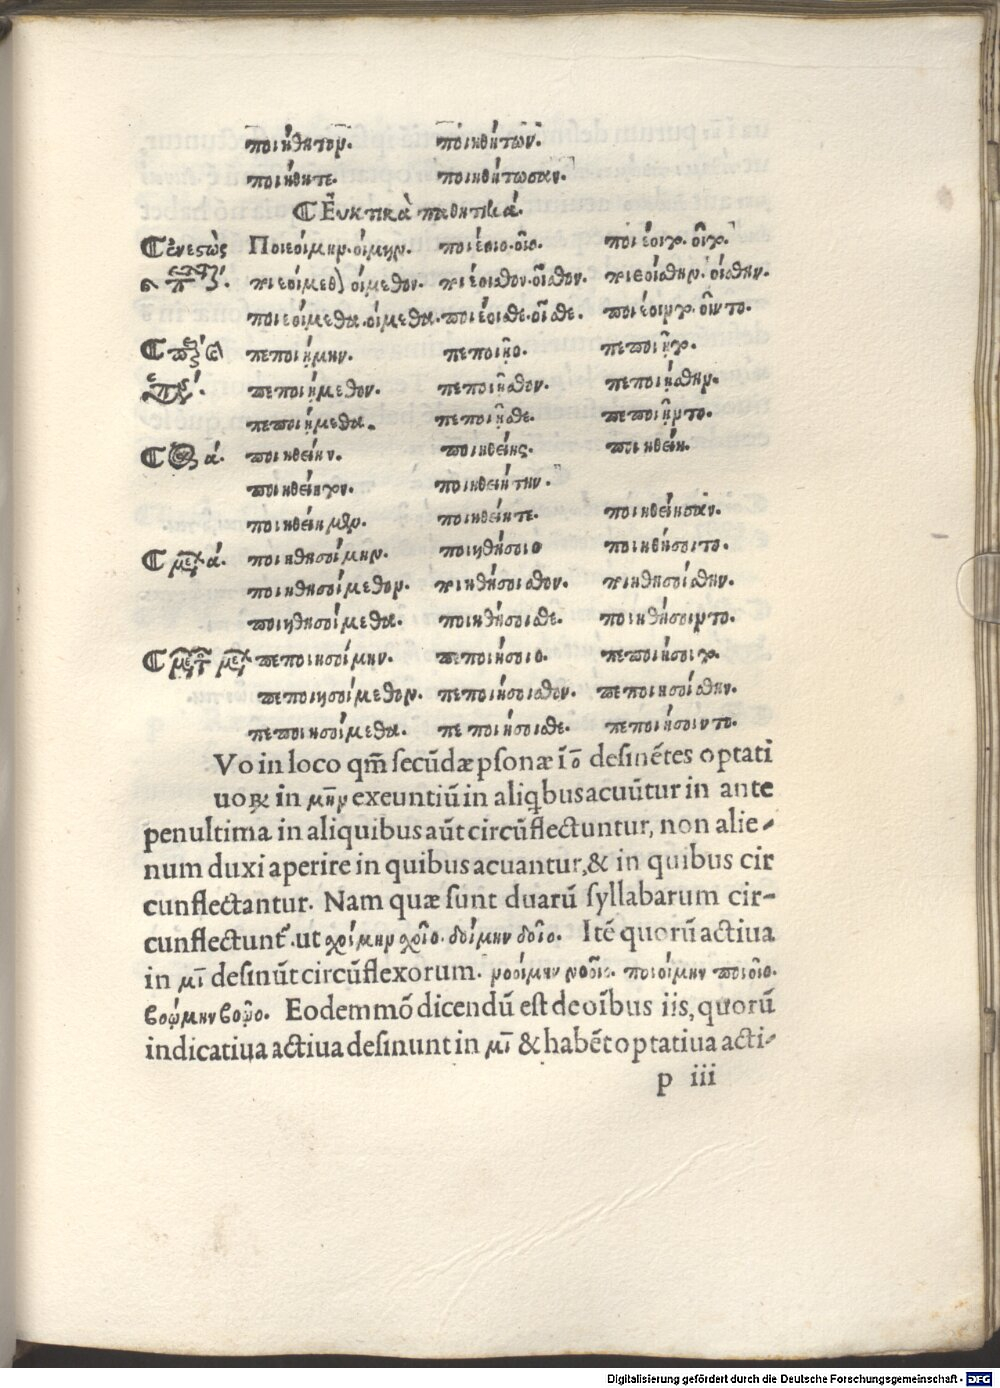 ποιήθητον. ποιηθήτων.
ποιήθητε. ποιηθήτωσαν.
¶ Εὐκτικὰ παθητικά.
¶ ἐνεστὼς Ποιεοίμην.οίμην. ποιέοιο.οῖο. ποιέοιτο. οῖτο.
ποιεοίμεθον οίμεθον. ποιέοισθον.οῖσθον. ποιεοίσθην.οίσθην.
ποιεοίμεθα.οίμεθα. ποιέοισθε.οῖσθε. ποιέοιντο.οῖντο.
¶ πεποιήμην. πεποιῇο. πεποιῇτο.
πεποιήμεθον. πεποιῇσθον. πεποιήσθην.
πεποιήμεθα. πεποιῇσθε. πεποιῇντο.
¶ ποιηθείην. ποιηθείης. ποιηθείη.
ποιηθείητον. ποιηθειήτην.
ποιηθείημεν. ποιηθείητε. ποιηθείησαν.
¶ ποιηθησοίμην. ποιηθήσοιο ποιηθήσοιτο.
ποιηθησοίμεθον. ποιηθήσοισθον. ποιηθησοίσθην.
ποιηθησοίμεθα. ποιηθήσοισθε. ποιηθήσοιντο.
¶ πεποιησοίμην. πεποιήσοιο. πεποιήσοιτο.
πεποιησοίμεθον. πεποιήσοισθον. πεποιησοίσθην.
πεποιησοίμεθα. πεποιήσοισθε. πεποιήσοιντο.
Vo in loco qm̄ secūdæ psonæ ī ο desinētes optati
uoꝝ in μην exeuntiū in aliqbus acuūtur in ante
penultima in aliquibus aūt circūflectuntur, non alie-
num duxi aperire in quibus acuantur,& in quibus cir
cunflectantur. Nam quæ sunt duarū syllabarum cir-
cunflectunt̄.ut χοίμην χοῖο. δοίμην δοῖο. Itē quorū actiua
in μι desinūt circūflexorum. νοοίμην νοοῖο. ποιοίμην ποιοῖο.
βοῴμην βοῷο. Eodem mō dicendū est de oībus iis, quorū
indicatiua actiua desinunt in μι & habēt optatiua acti-
p iii
Digitalisierung gefördert durch die Deutsche Forschungsgemeinschaft - DFG